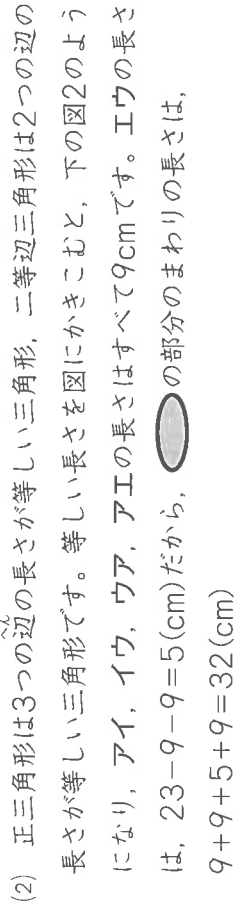 (2) 正三角形は3つの辺の長さが等しい三角形，二等辺三角形は2つの辺の
へん
長さが等しい三角形です。等しい長さを図にかきこむと，下の図2のよう
になり，アイ，イウ，ウア，アエの長さはすべて9cmです。エウの長さ
は，23－9－9＝5(cm)だから，の部分のまわりの長さは，
9＋9＋5＋9＝32(cm)